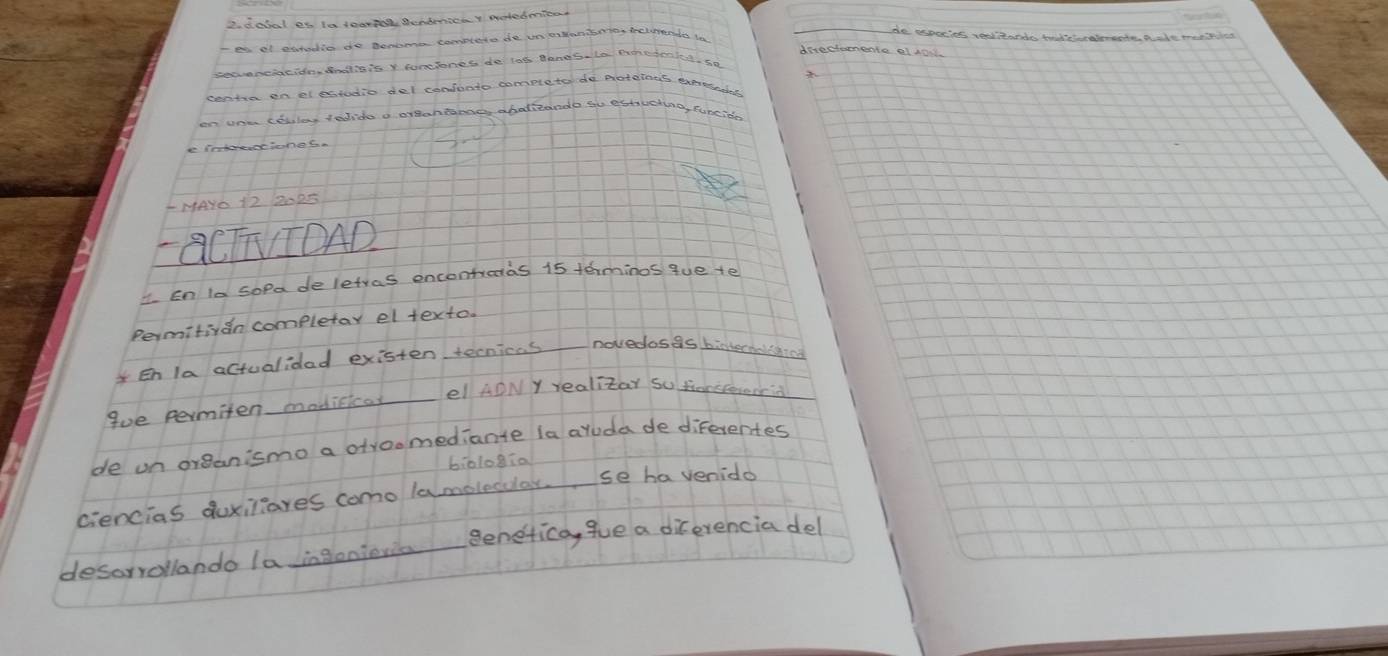 2. es la
- es el estudio de genoma completo de un organismo, incluyendo la
secuenciación, análisis y funciones de los genes. La se
centra en el estudio del conjunto completo de proteinas expresadas
en una célula, tejido o analizando su estructura, función
e interacciones.
- MAYO 12 2025
- aCTIVIDAD
1. En la sopa de letras encontrarás 15 términos que te
Permitirán completar el texto.
* En la actualidad existen tecnicas novedosas
que permiten modificar el ADN y realizar su
de un organismo a otro. mediante la ayuda de diferentes
biología
ciencias auxiliares como la molecular. se ha venido
desarrollando la ingenieria genética, que a diferencia del
de especies realizando
directamente el ADN.